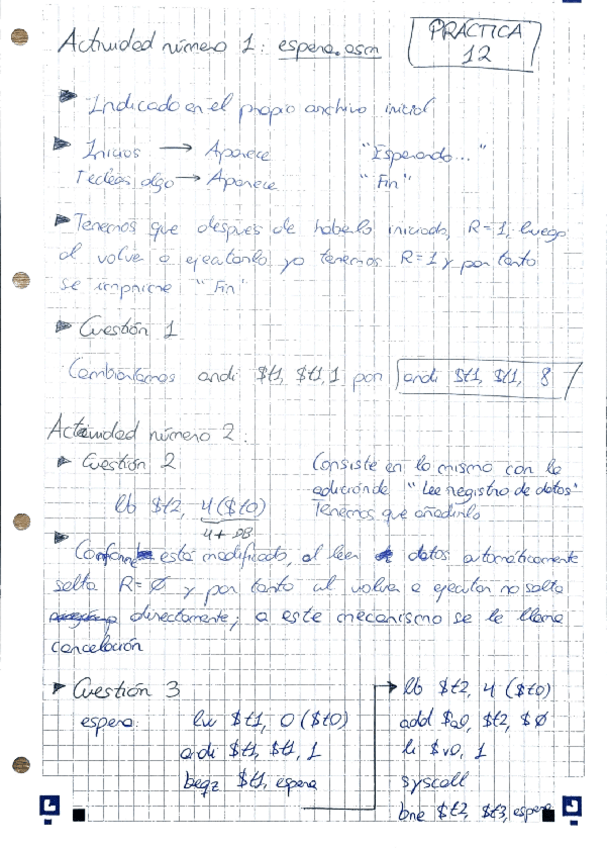 PRÁCTICA
12
Actividad número 1: espera.asm
Indicado en el propio archivo inicial
Inicios → Aparece "Esperando..."
Tecleas algo → Aparece "Fin"
Tenemos que después de haberlo iniciado, R=1, luego
al volver a ejecutarlo ya tenemos R=1 y por tanto
se imprime "Fin"
Cuestión 1
Cambiaríamos andi $t1, $t1, 1 por andi $t1, $t1, 8
Actividad número 2.
Cuestión 2
Consiste en lo mismo con la
edición de "Lee registro de datos"
Tenemos que añadirlo
lb $t2, 4($t0)
4+DB
Conforme está modificado, al leer datos automáticamente
salta R=Ø y por tanto al volver a ejecutar no salta
directamente; a este mecanismo se le llama
cancelación
Cuestión 3
espera: lw $t1, 0($t0)
andi $t1, $t1, 1
beqz $t1, espera
lb $t2, 4($t0)
add $a0, $t2, $Ø
li $v0, 1
syscall
bne $t2, $t3, espera